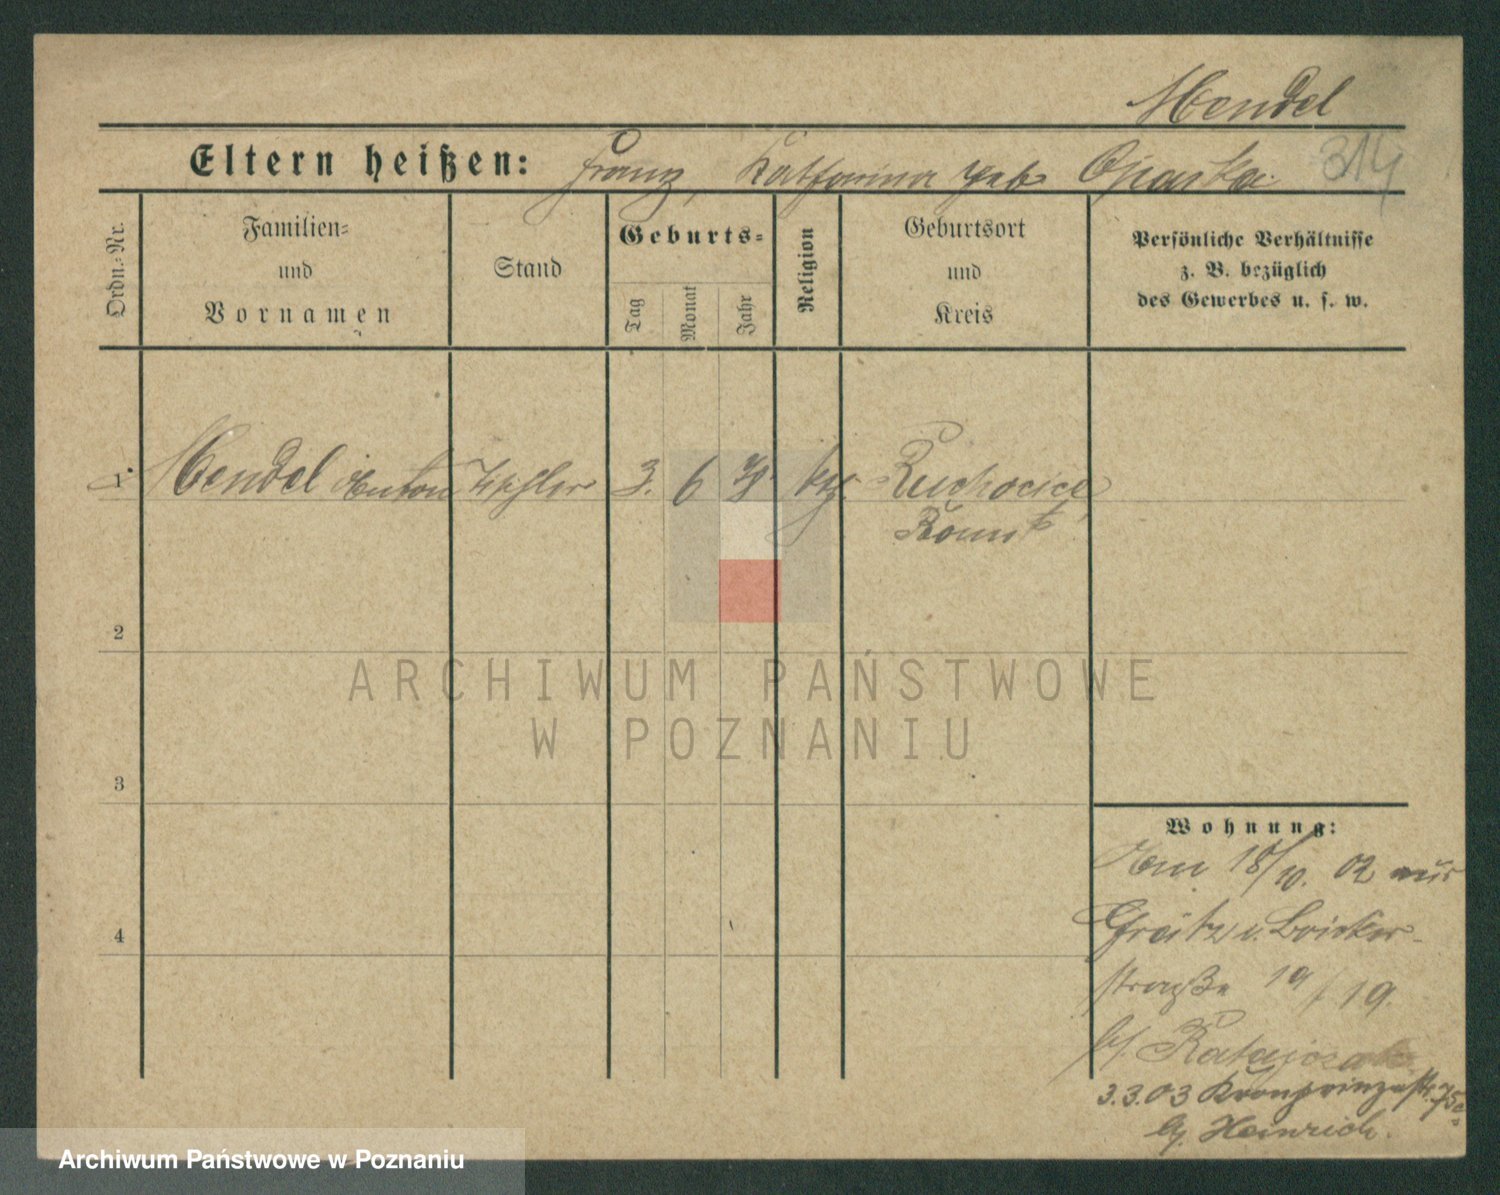 Mendel
314
Eltern heißen: Franz, Katharina geb Oparka
Ordn.-Nr.
Familien-
und
Vornamen
Stand
Geburts-
Tag
Monat
Jahr
Religion
Geburtsort
und
Kreis
Persönliche Verhältnisse
z. B. bezüglich
des Gewerbes u. s. w.
1 Mendel Anton 3. 6 kth. Ruchocice
Bomst
2
3
4
Wohnung:
Am 18/10. 02 aus
Grätz n. Bäcker-
straße 19/19.
b/ Ratajczak
3.3.03 Kronprinzenstr. 75a
b/. Heinrich.
ARCHIWUM PAŃSTWOWE
W POZNANIU
Archiwum Państwowe w Poznaniu